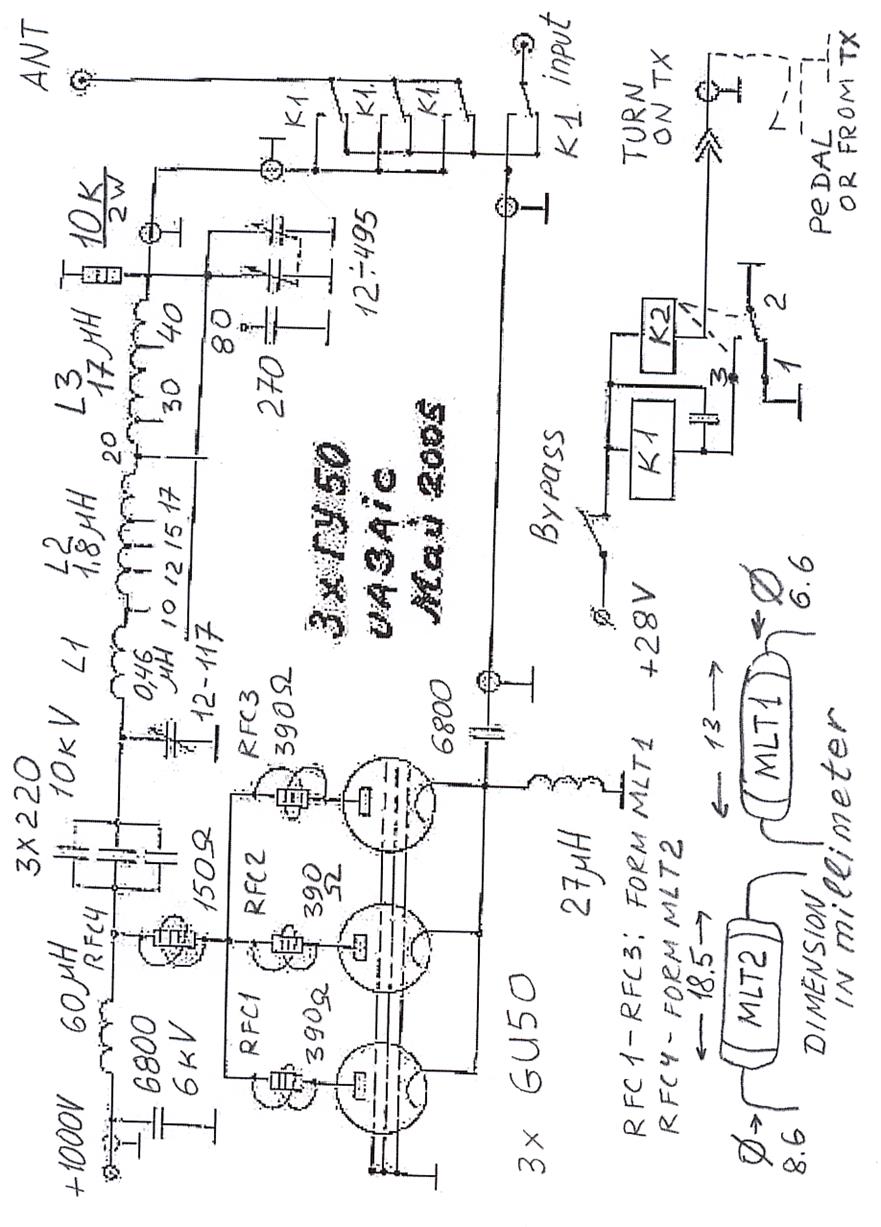 +1000V
6800
6KV
60µH
RFC4
3X220
10KV
150Ω
L1
0,46
µH
12-117
L2
1,8µH
10 12 15 17
20
L3
17µH
30
40
10K
2W
80
270
12÷495
ANT
K1
K1
K1
K1 input
RFC1
390Ω
RFC2
390
Ω
RFC3
390Ω
3 x ГУ50
UA3AIC
Май 2005
6800
27µH
3x GU50
BYPASS
+28V
K1
K2
3
1
2
TURN
ON TX
PEDAL
OR FROM TX
RFC1-RFC3: FORM MLT1
RFC4-FORM MLT2
18.5
MLT2
Ø
8.6
13
MLT1
Ø
6.6
DIMENSION
IN millimeter